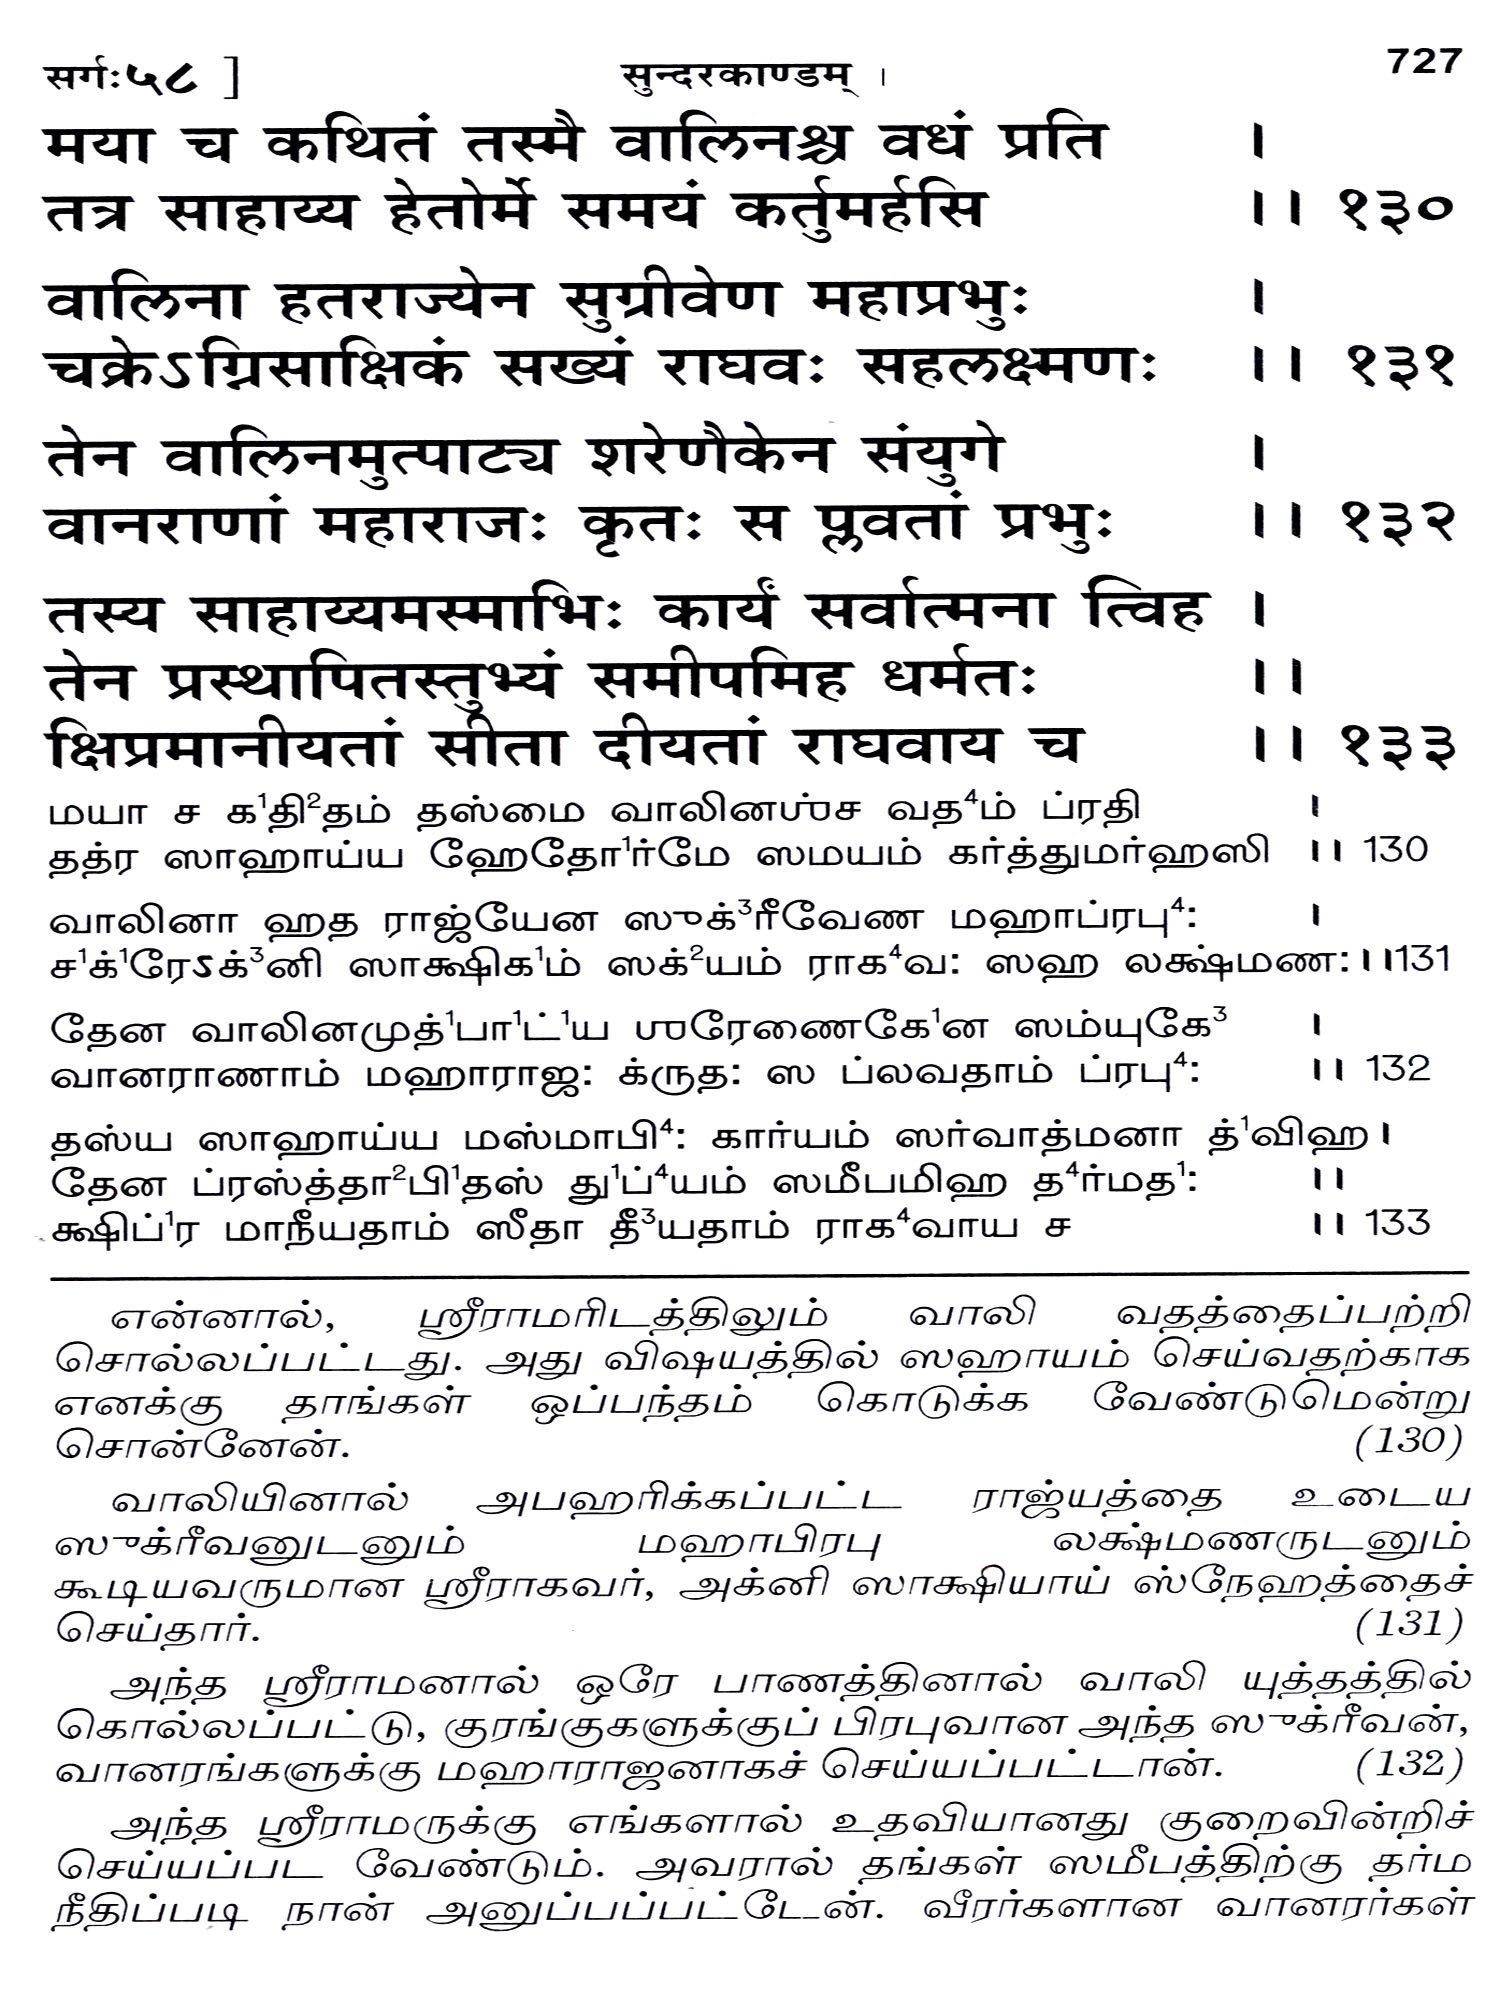 सर्गः५८ ] सुन्दरकाण्डम् । 727
मया च कथितं तस्मै वालिनश्च वधं प्रति ।
तत्र साहाय्य हेतोर्मे समयं कर्तुमर्हसि ।। १३०
वालिना हतराज्येन सुग्रीवेण महाप्रभुः ।
चक्रेऽग्निसाक्षिकं सख्यं राघवः सहलक्ष्मणः ।। १३१
तेन वालिनमुत्पाट्य शरेणैकेन संयुगे ।
वानराणां महाराजः कृतः स प्लवतां प्रभुः ।। १३२
तस्य साहाय्यमस्माभिः कार्यं सर्वात्मना त्विह ।
तेन प्रस्थापितस्तुभ्यं समीपमिह धर्मतः ।।
क्षिप्रमानीयतां सीता दीयतां राघवाय च ।। १३३
மயா ச க¹தி²தம் தஸ்மை வாலினஶ்ச வத⁴ம் ப்ரதி ।
தத்ர ஸாஹாய்ய ஹேதோ¹ர்மே ஸமயம் கர்த்துமர்ஹஸி ।। 130
வாலினா ஹத ராஜ்யேன ஸுக்³ரீவேண மஹாப்ரபு⁴: ।
ச¹க்¹ரேऽக்³னி ஸாக்ஷிக¹ம் ஸக்²யம் ராக⁴வ: ஸஹ லக்ஷ்மண: ।।131
தேன வாலினமுத்¹பா¹ட்¹ய ஶரேணைகே¹ன ஸம்யுகே³ ।
வானராணாம் மஹாராஜ: க்ருத: ஸ ப்லவதாம் ப்ரபு⁴: ।। 132
தஸ்ய ஸாஹாய்ய மஸ்மாபி⁴: கார்யம் ஸர்வாத்மனா த்¹விஹ ।
தேன ப்ரஸ்த்தா²பி¹தஸ் து¹ப்⁴யம் ஸமீபமிஹ த⁴ர்மத¹: ।।
க்ஷிப்¹ர மாநீயதாம் ஸீதா தீ³யதாம் ராக⁴வாய ச ।। 133
என்னால், ஸ்ரீராமரிடத்திலும் வாலி வதத்தைப்பற்றி
சொல்லப்பட்டது. அது விஷயத்தில் ஸஹாயம் செய்வதற்காக
எனக்கு தாங்கள் ஒப்பந்தம் கொடுக்க வேண்டுமென்று
சொன்னேன். (130)
வாலியினால் அபஹரிக்கப்பட்ட ராஜ்யத்தை உடைய
ஸுக்ரீவனுடனும் மஹாபிரபு லக்ஷ்மணருடனும்
கூடியவருமான ஸ்ரீராகவர், அக்னி ஸாக்ஷியாய் ஸ்நேஹத்தைச்
செய்தார். (131)
அந்த ஸ்ரீராமனால் ஒரே பாணத்தினால் வாலி யுத்தத்தில்
கொல்லப்பட்டு, குரங்குகளுக்குப் பிரபுவான அந்த ஸுக்ரீவன்,
வானரங்களுக்கு மஹாராஜனாகச் செய்யப்பட்டான். (132)
அந்த ஸ்ரீராமருக்கு எங்களால் உதவியானது குறைவின்றிச்
செய்யப்பட வேண்டும். அவரால் தங்கள் ஸமீபத்திற்கு தர்ம
நீதிப்படி நான் அனுப்பப்பட்டேன். வீரர்களான வானரர்கள்